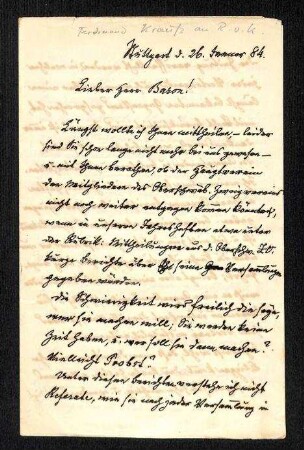 Ferdinand Krauß an R. v. K.
Stuttgart d. 26. Januar 84.
Lieber Herr Baron!
Längst wollte ich Ihnen mittheilen, – leider
sind Sie schon lange nicht mehr bei uns gewesen –
u. mit Ihnen berathen, ob der Hauptverein
den Mitgliedern des Oberschwäb. Zweigvereins
nicht noch weiter entgegen kommen könnte,
wenn in unseren Jahresheften etwa unter
der Rubrik: Mittheilungen aus d. Oberschw. Z.V.
kurze Berichte über seine Versammlungen
gegeben würden.
Die Schwierigkeit wird freilich die sein,
wer sie machen will, Sie werden keine
Zeit haben, u. wer soll sie dann machen?
Vielleicht Probst?
Unter diesen Berichten verstehe ich nicht
Referate, wie sie nach jeder Versammlung in